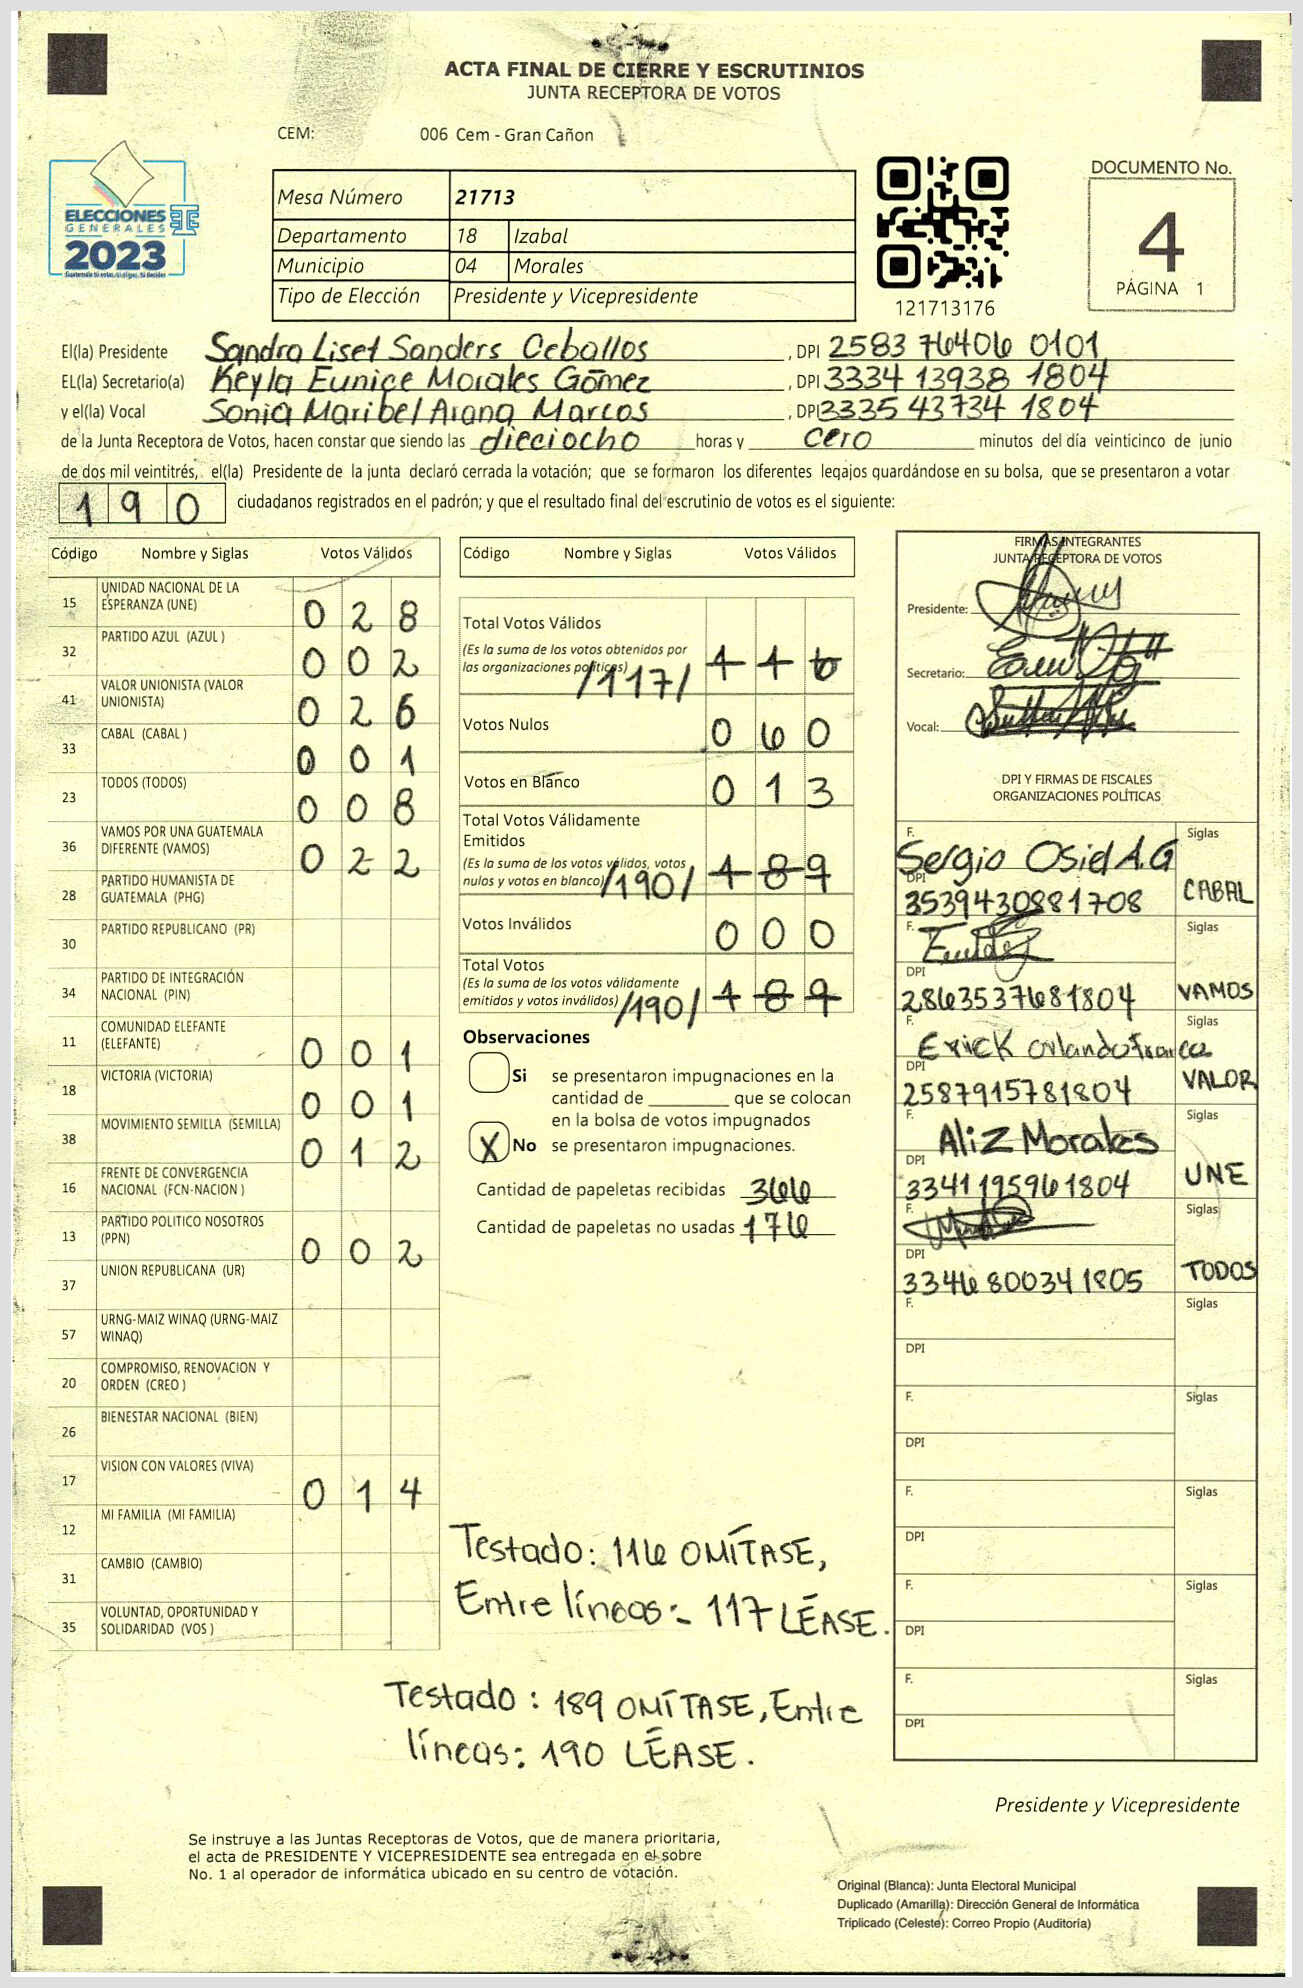 ACTA FINAL DE CIERRE Y ESCRUTINIOS
JUNTA RECEPTORA DE VOTOS
CEM: 006 Cem - Gran Cañon
ELECCIONES
GENERALES
2023
Mesa Número 21713
Departamento 18 Izabal
Municipio 04 Morales
Tipo de Elección Presidente y Vicepresidente
121713176
DOCUMENTO No.
4
PÁGINA 1
El(la) Presidente Sandra Liset Sanders Ceballos, DPI 2583 76406 0101
EL(la) Secretario(a) Keyla Eunice Morales Gómez, DPI 3334 13938 1804
y el(la) Vocal Sonia Maribel Arana Marcos, DPI 3335 43734 1804
de la Junta Receptora de Votos, hacen constar que siendo las dieciocho horas y cero minutos del día veinticinco de junio
de dos mil veintitrés, el(la) Presidente de la junta declaró cerrada la votación; que se formaron los diferentes legajos guardándose en su bolsa, que se presentaron a votar
190 ciudadanos registrados en el padrón; y que el resultado final del escrutinio de votos es el siguiente:
Código Nombre y Siglas Votos Válidos
15 UNIDAD NACIONAL DE LA
ESPERANZA (UNE) 028
32 PARTIDO AZUL (AZUL ) 002
41 VALOR UNIONISTA (VALOR
UNIONISTA) 026
33 CABAL (CABAL ) 001
23 TODOS (TODOS) 008
36 VAMOS POR UNA GUATEMALA
DIFERENTE (VAMOS) 022
28 PARTIDO HUMANISTA DE
GUATEMALA (PHG)
30 PARTIDO REPUBLICANO (PR)
34 PARTIDO DE INTEGRACIÓN
NACIONAL (PIN)
11 COMUNIDAD ELEFANTE
(ELEFANTE) 001
18 VICTORIA (VICTORIA) 001
38 MOVIMIENTO SEMILLA (SEMILLA) 012
16 FRENTE DE CONVERGENCIA
NACIONAL (FCN-NACION )
13 PARTIDO POLITICO NOSOTROS
(PPN) 002
37 UNION REPUBLICANA (UR)
57 URNG-MAIZ WINAQ (URNG-MAIZ
WINAQ)
20 COMPROMISO, RENOVACION Y
ORDEN (CREO )
26 BIENESTAR NACIONAL (BIEN)
17 VISION CON VALORES (VIVA) 014
12 MI FAMILIA (MI FAMILIA)
31 CAMBIO (CAMBIO)
35 VOLUNTAD, OPORTUNIDAD Y
SOLIDARIDAD (VOS )
Código Nombre y Siglas Votos Válidos
Total Votos Válidos
(Es la suma de los votos obtenidos por
las organizaciones políticas) /117/ 116
Votos Nulos 060
Votos en Blanco 013
Total Votos Válidamente
Emitidos
(Es la suma de los votos válidos, votos
nulos y votos en blanco) /190/ 189
Votos Inválidos 000
Total Votos
(Es la suma de los votos válidamente
emitidos y votos inválidos) /190/ 189
Observaciones
Si se presentaron impugnaciones en la
cantidad de ________ que se colocan
en la bolsa de votos impugnados
X No se presentaron impugnaciones.
Cantidad de papeletas recibidas 366
Cantidad de papeletas no usadas 176
Testado: 116 OMÍTASE,
Entre líneas:- 117 LÉASE.
Testado: 189 OMÍTASE, Entre
líneas: 190 LÉASE.
FIRMAS INTEGRANTES
JUNTA RECEPTORA DE VOTOS
Presidente:
Secretario:
Vocal:
DPI Y FIRMAS DE FISCALES
ORGANIZACIONES POLÍTICAS
F. Sergio Osiel A.G Siglas
DPI 3539430881708 CABAL
F. Siglas
DPI 2863537681804 VAMOS
F. Erick Orlando Franco Siglas
DPI 2587915781804 VALOR
F. Aliz Morales Siglas
DPI 3341195961804 UNE
F. Siglas
DPI 3346800341805 TODOS
F. Siglas
DPI
F. Siglas
DPI
F. Siglas
DPI
F. Siglas
DPI
F. Siglas
DPI
Presidente y Vicepresidente
Se instruye a las Juntas Receptoras de Votos, que de manera prioritaria,
el acta de PRESIDENTE Y VICEPRESIDENTE sea entregada en el sobre
No. 1 al operador de informática ubicado en su centro de votación.
Original (Blanca): Junta Electoral Municipal
Duplicado (Amarilla): Dirección General de Informática
Triplicado (Celeste): Correo Propio (Auditoría)